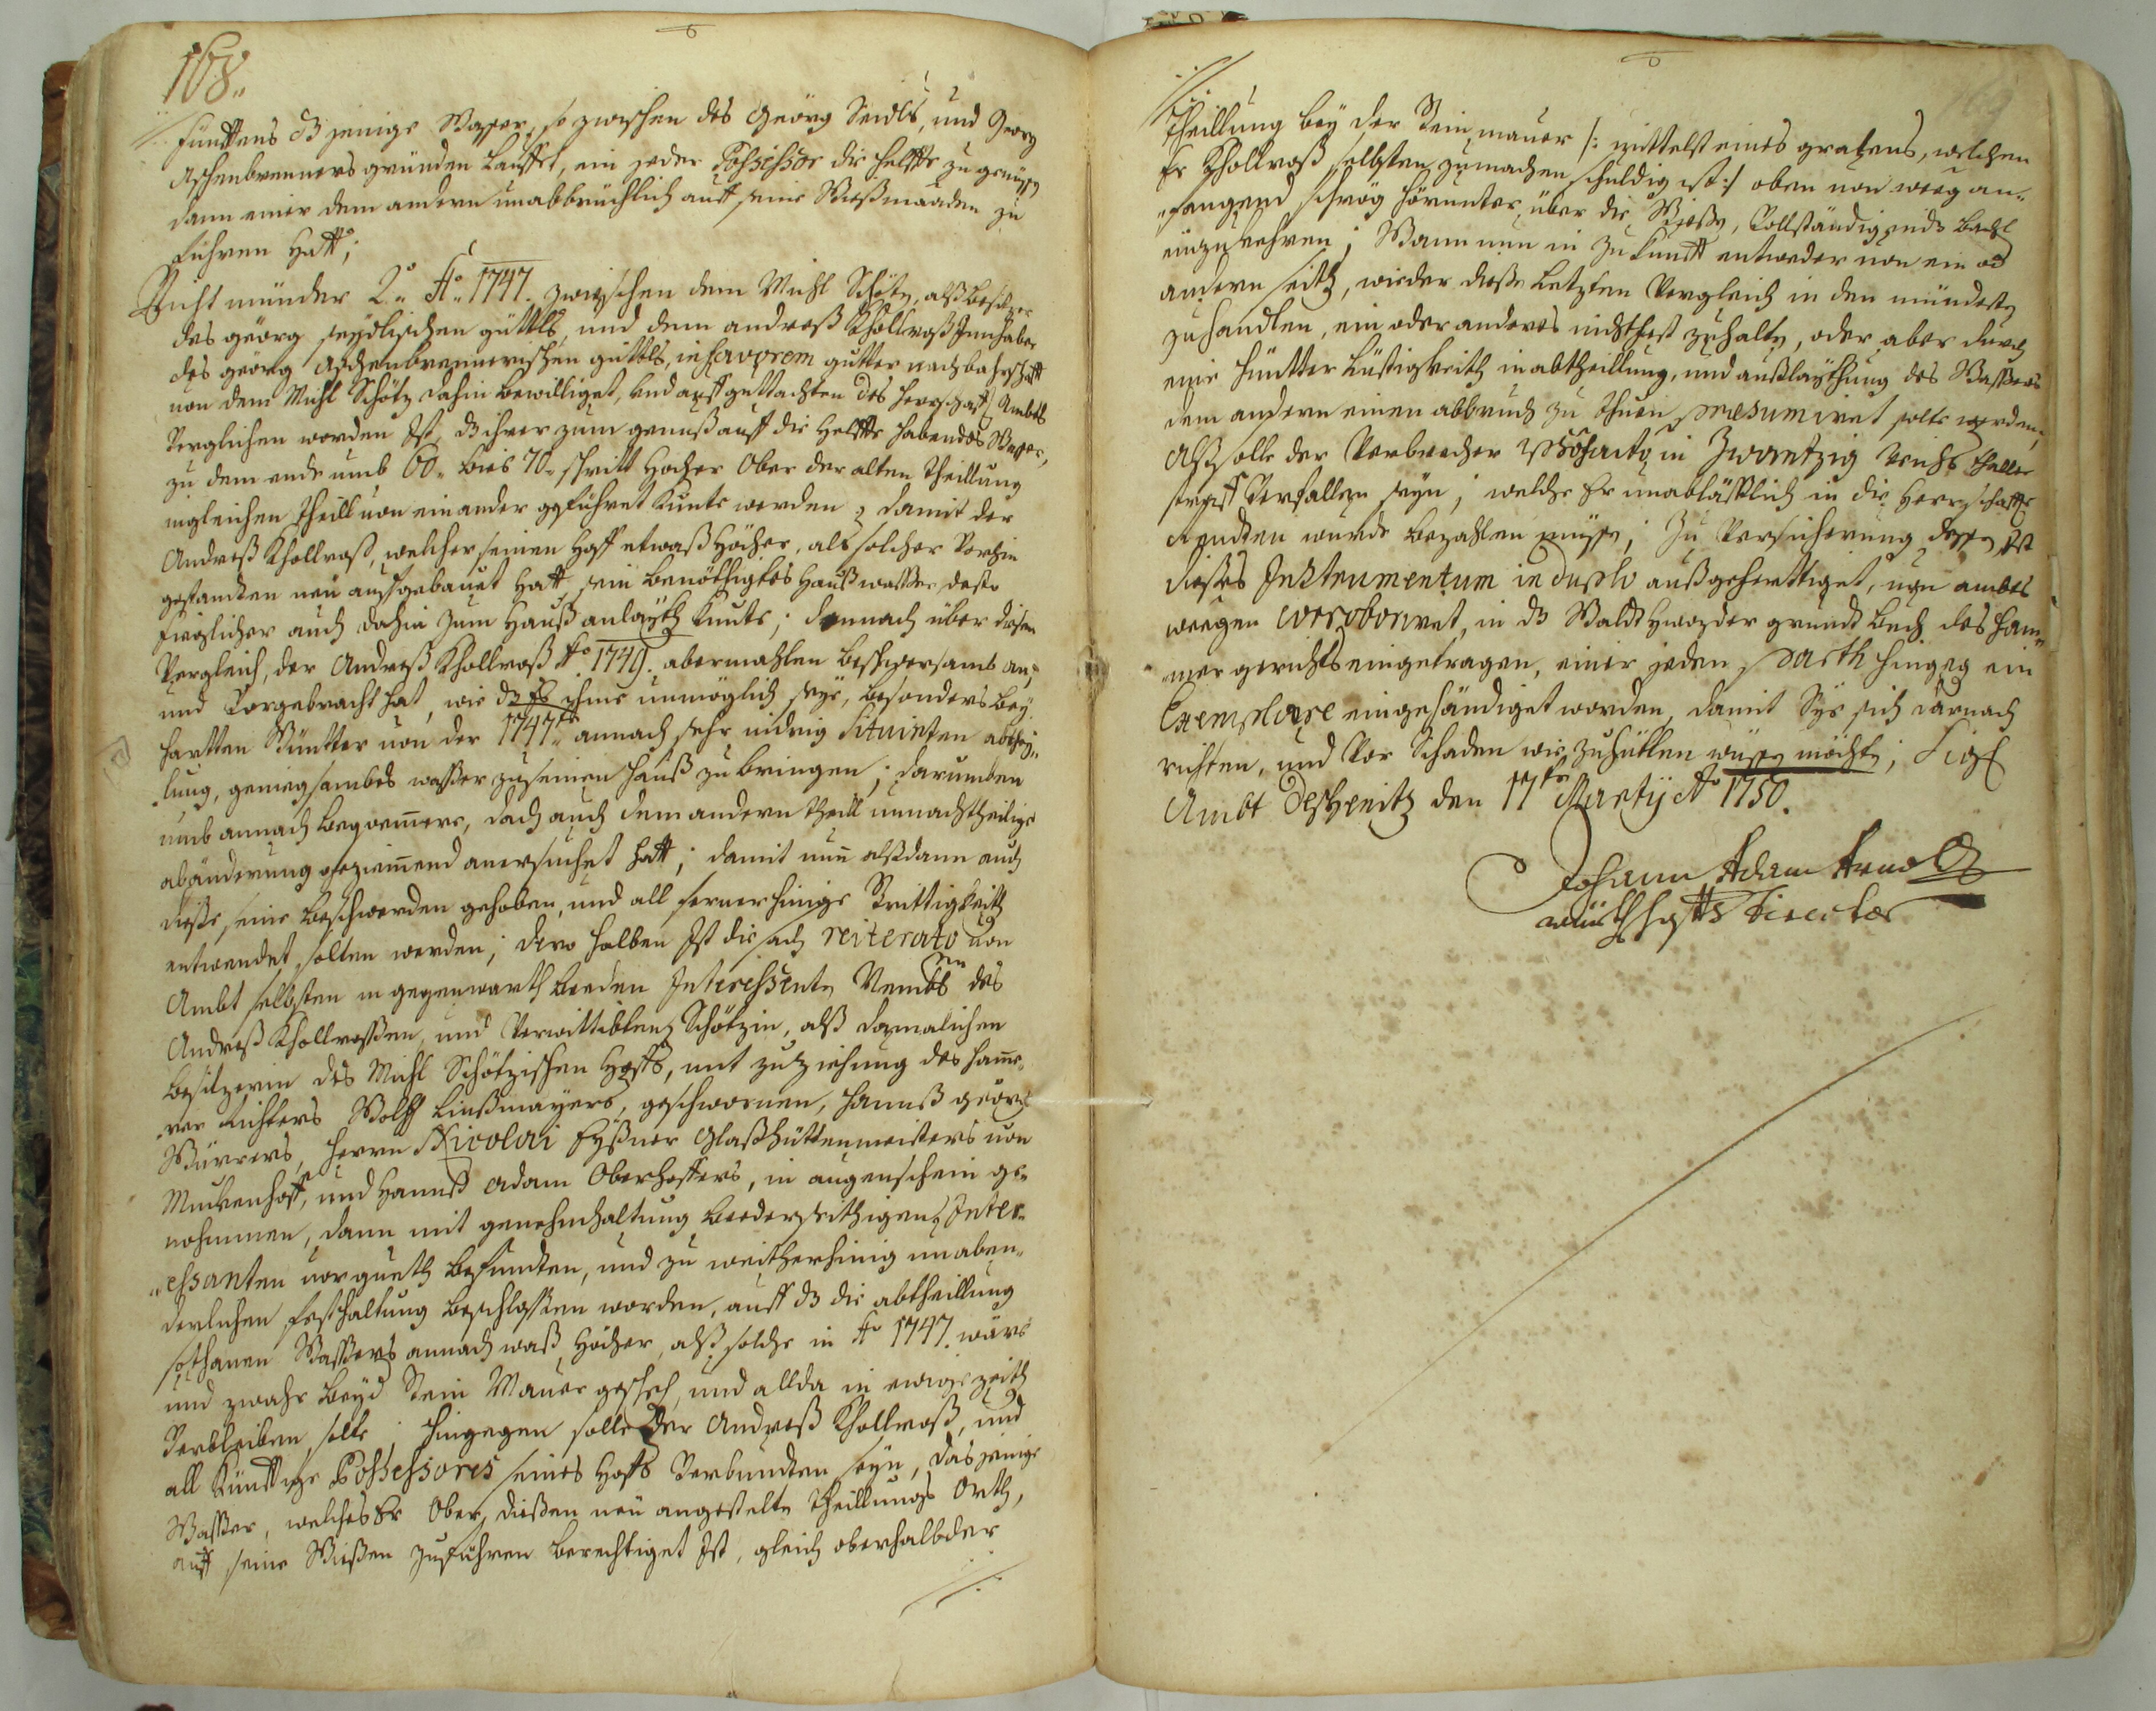 168.
fünfftens dß jenige Wasser, so zwischen des Geörg Seidls, und Georg
Aschenbrenners gründen lauffet, ein jeder Possessor die helffte zu genüssen,
dann einer dem andern unabbrüchlich auff seine Wießmaaden zu
führen hatt;
Nicht münder 2.° A° 1747. zwischen dem Michl Schötz, alß besitzer
des geörg seydlischen güttls, und dem andreß Khollroß Innhaber
des geörg Aschenbrennerischen güttls, in favorem gutter nachbahrschafft
von dem Michl Schötz dahin bewilliget, und auff guttachten des herrschafft Ambts
verglichen worden ist, dß ihrer zum genuß auff die helffte habendes Wasser,
zu dem ende umb 60. bies 70. schritt hocher ober der alten theillung
ingleichen theill von einander geführet kunte werden, damit der
Andreß Khollroß, welcher seinen Hoff etwaß höcher, als solcher vorhin
gestandten neu auffgebauet hatt, sein benöthigtes haußwasser desto
füeglicher auch dahin zum hauß anlayth kunte; demnach über diesen
Vergleich, der Andreß Khollroß A° 1749. abermahlen beschwersamb an,
und vorgebracht hat, wie dß es ihme unmöglich seye, besonders bey
hartten Wüntter von der 1747.te annach sehr nidrig situirten abthei-
lung, genuegsambes wasser zu seinen hauß zu bringen; darumben
umb annach bequemere, doch auch dem andern theill unnachtheilige
abänderung geziemmend anersuchet hatt; damit nun alßdann auch
diese, seine beschwerden gehoben, und all fernerhinige Strittigkeith
entwendet sollen werden; dero halben ist die sach reiterato von
Ambt selbsten in gegenwarth beeden Interessenten Nembl. des
Andreß Khollrossen, und Verwittibten Schötzin, alß damalichen
besitzerin des Michl Schötzischen Hoffs, mit zuziehung des hamme-
rer Richters Wolff Linßmayers, geschwornen, Hannß geörg
Würrers, Herrn Nicolai Eyßner Glaßhüttenmeisters von
Muckenhoff, und Hannß Adam Oberhoffers, in augenschein ge-
nohmmen, dann mit genehmhaltung beederseithigen Inter-
essanten vor gueth befundten, und zu weitherhinig unaben-
derlichen festhaltung beschlossen worden, auff dß die abtheillung
sothanen Wassers annach waß höcher, alß solche in A° 1747. wäre
und zwahr beyd Stein Mauer gescheh, und allda in ewige zeith
verbleiben solle; hingegen solle der Andreß Khollroß, und
all künfftige Possessores seines Hoffs verbundten seyn, dasjenige
Wasser, welches Er ober dießen neu angestelten theillungs Orth,
auff seine Wießen zuführen berechtiget ist, gleich oberhalb der
169
theillung bey der Stein mauer /: mittelst eines grabens, welchen
Er Khollroß selbsten zumachen schuldig ist :/ oben von weeg an-
fangend schrög hörunter, über die Wießn, vollständig ins bachl
einzukehren; Wann nun in zukunfft entweder von ein od
andern seith, wieder diesen letzten Vergleich in den mündesten
zuhandlen, ein oder anderes nicht fest zuhalten, oder aber durch
eine hüntterlüstigkeith in abtheillung, und außlaythung des Wassers
dem andern einen abbruch zu thuen praesumiret solte werden,
Alß solle der Verbrecher ipso facto, in Zwantzig Reichs thaller
straff verfallen seyn; welche Er unabläßlich in die herrschaffts
Rendten wurde bezahlen müssen; Zu Versicherung dessen ist
dießes Instrumentum in duplo außgeferttiget, von ambts
weegen corroboriret, in dß Waldthwozder grundt buch des ham-
mer gerichts eingetragen, einer jeden parth hingeg ein
Exemplare eingehändiget worden, damit Sye sich darnach
richten, und vor Schaden wie zuhütten wüssen möchten; Sigl
Ambt Deschenitz den 17.ten Martij A° 1750.
Johann Adam Arnold
würthschaffts Director